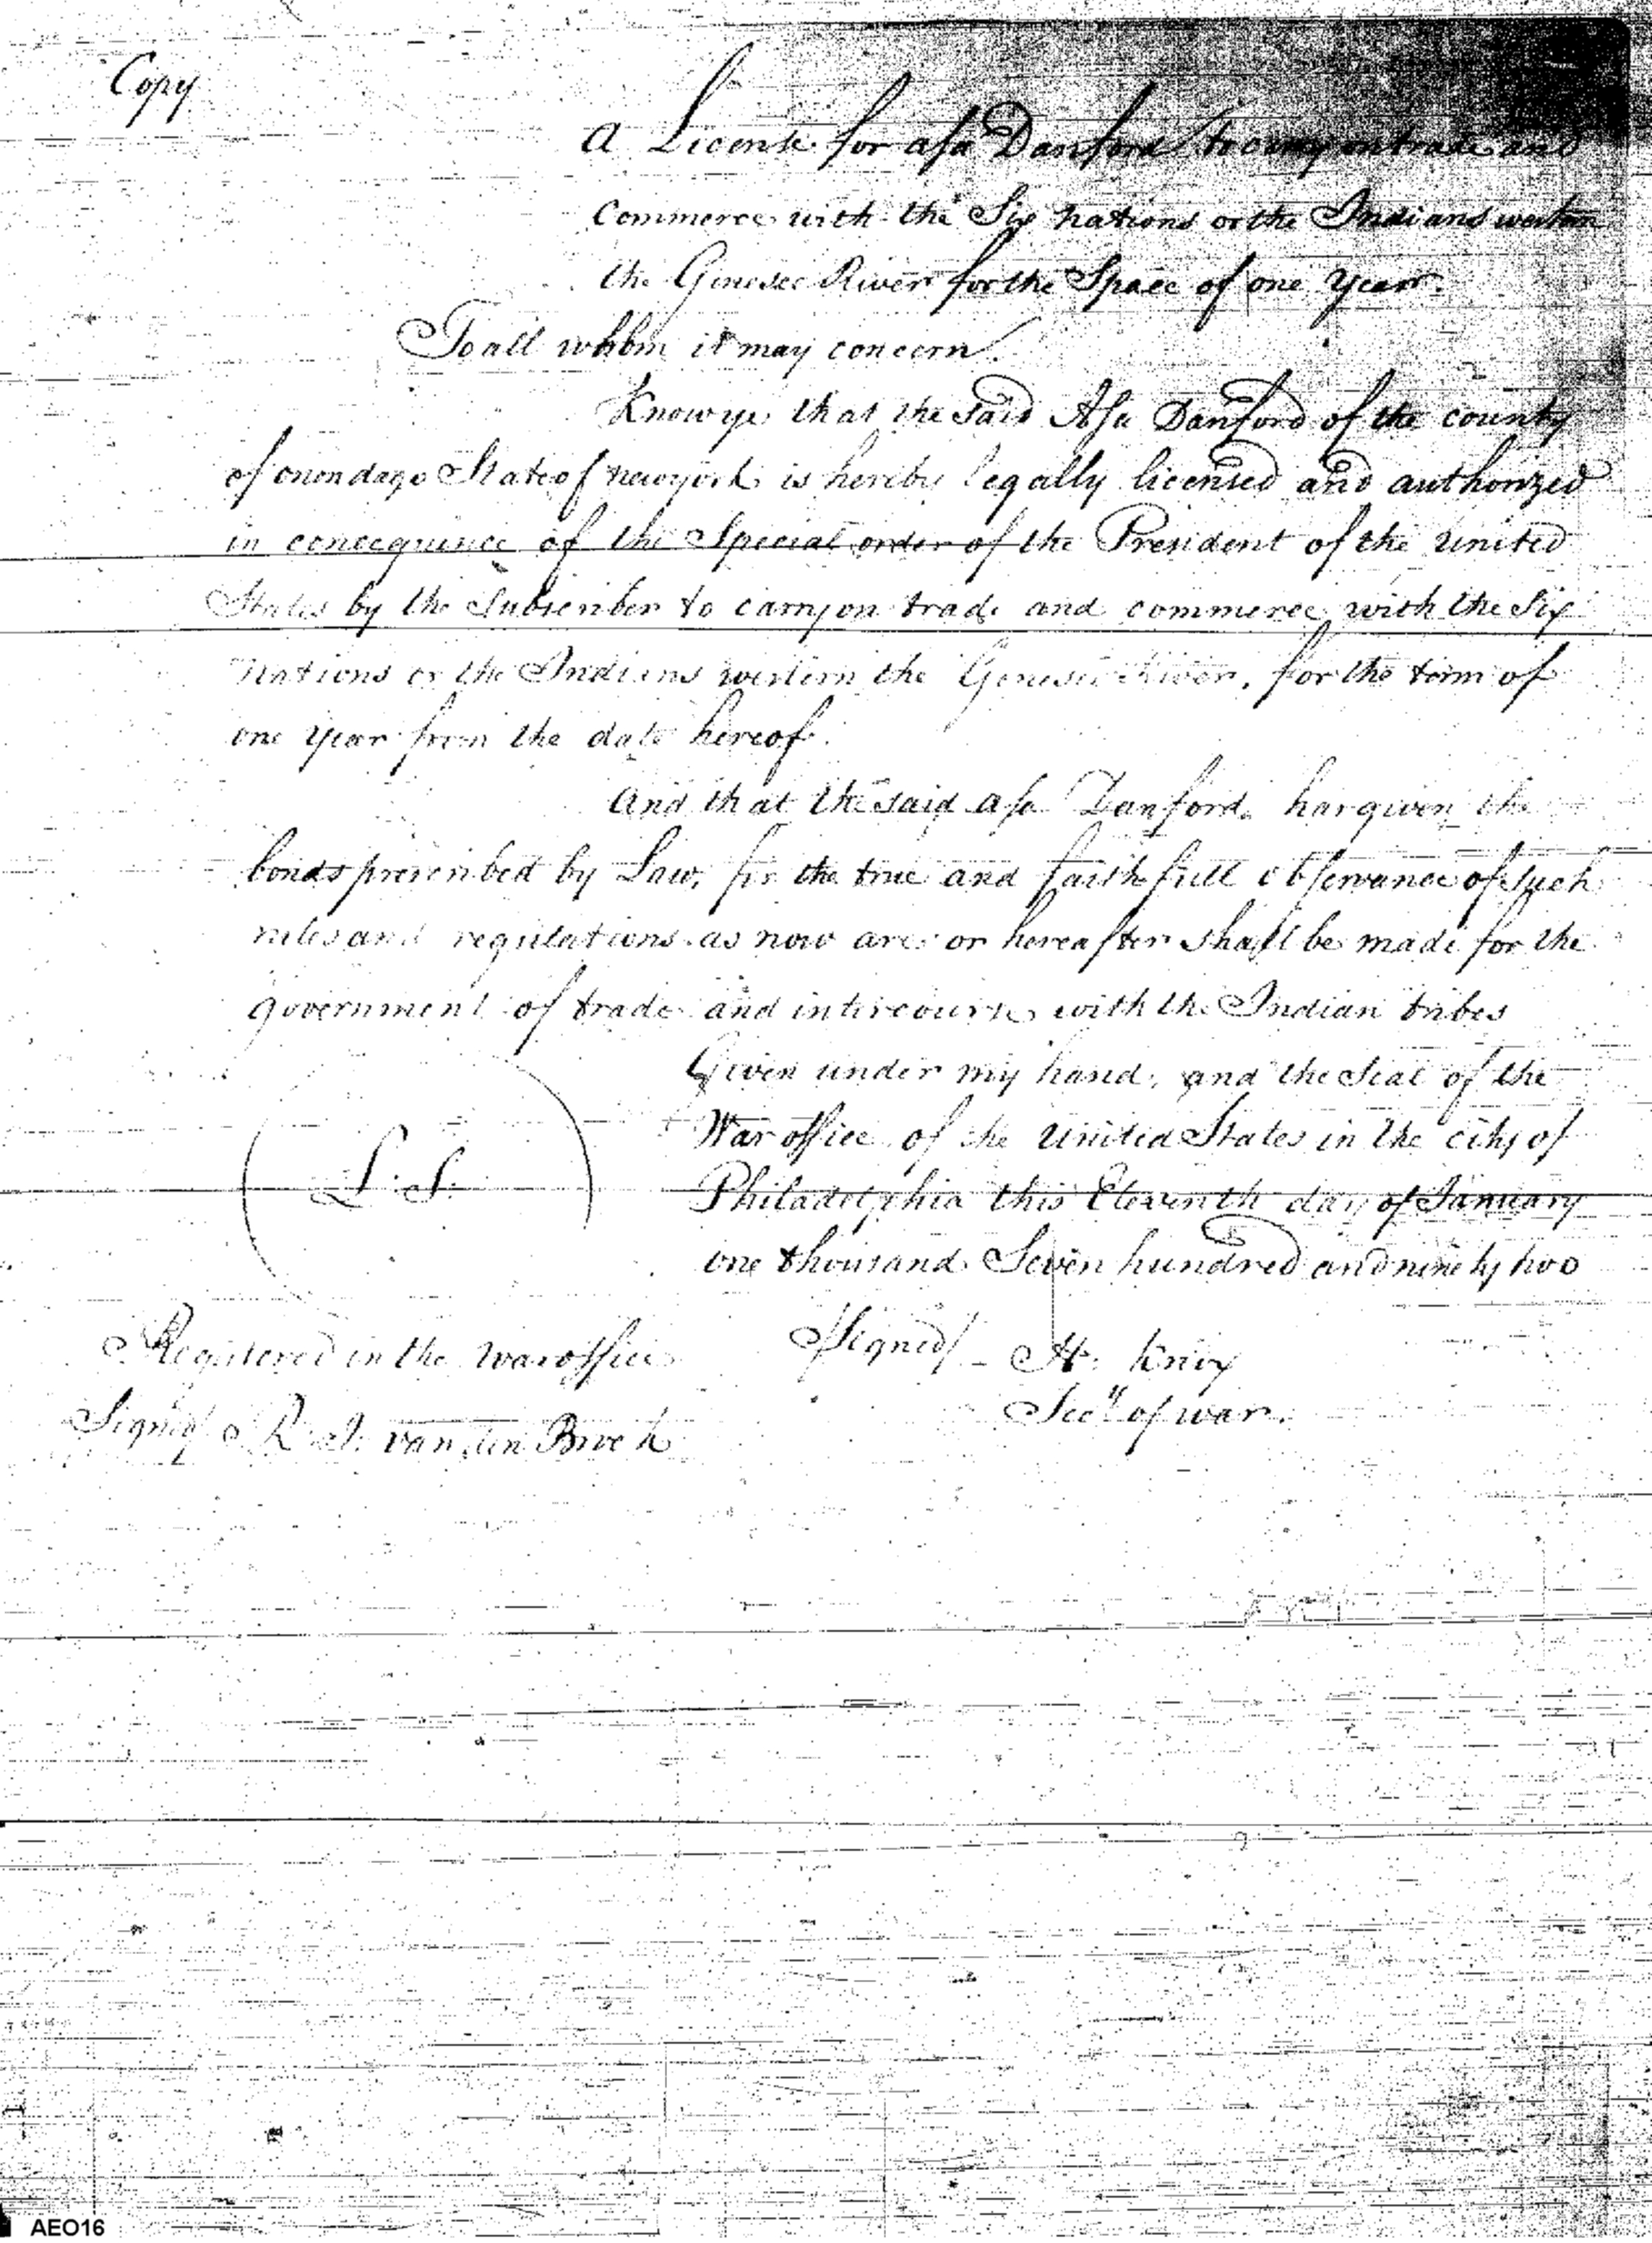 Copy
A License for asa Danford to carry on trade and
Commerce with the Six nations or the Indians western
the Genesee River for the Space of one Year.
To all whom it may concern.
Know ye that the said Asa Danford of the county
of onondago State of newyork is hereby legally licensed and authorized
in concequence of the Special order of the President of the united
States by the Subscriber to carry on trade and commerce with the Six
nations or the Indians western the Genesee River, for the term of
one year from the date hereof.
And that the said asa Danford has given the
bonds prescribed by Law, for the true and faithfull observance of such
rules and regulations as now are or hereafter shall be made for the
government of trade and intercourse with the Indian tribes
Given under my hand, and the Seal of the
War office of the United States in the city of
L.S.
Philadelphia this Eleventh day of January
one thousand Seven hundred and ninety two
Registered in the war office
Signed/ - H. Knox
Signed R. J. van den Broek
Secy of war.
AEO16